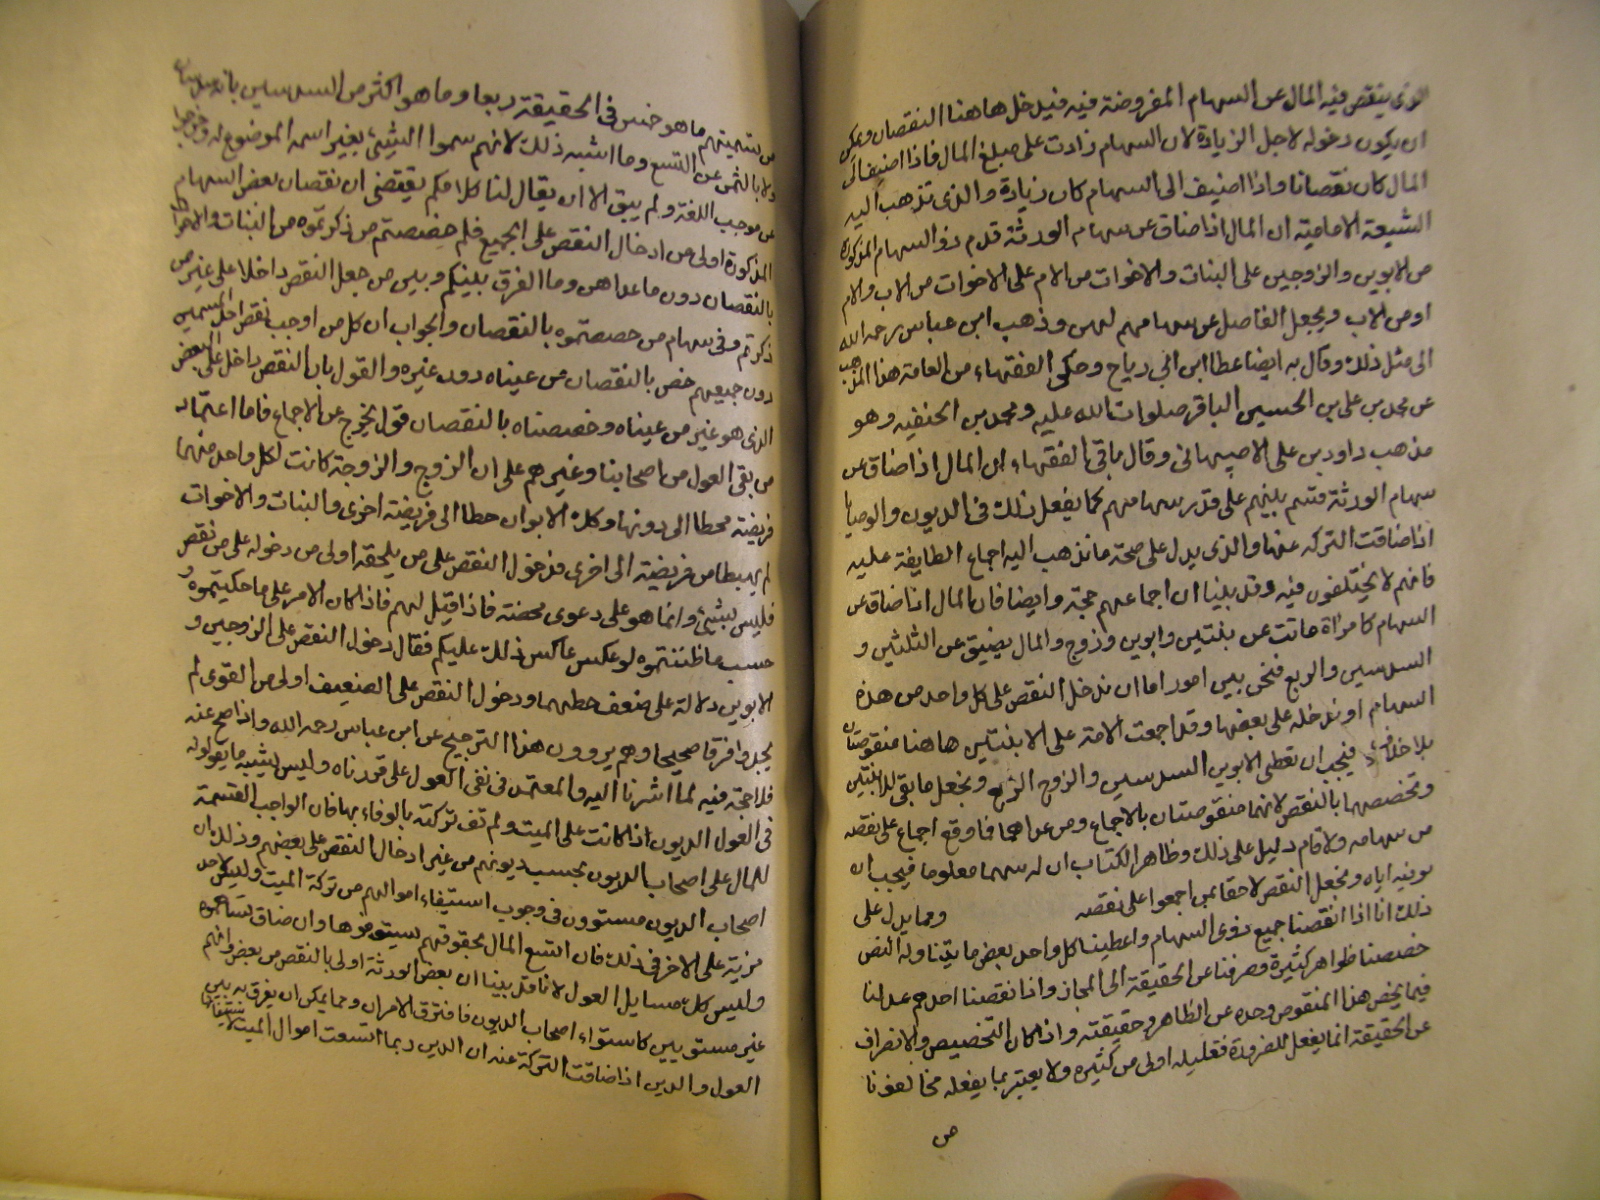 الذى ينقص فيه المال عن السهام المفروضة فيه فيدخل هاهنا النقصان ويمكن
ان يكون دخوله لاجل الزيادة لان السهام زادت على مبلغ المال فاذا اضيف الى
المال كان نقصانا واذا اضيف الى السهام كان زيادة والذى تذهب اليه
الشيعة الامامية ان المال اذا ضاق عن سهام الورثة قدم ذو السهام المذكورة
من الابوين والزوجين على البنات والاخوات من الام على الاخوات من الاب والام
او من الاب ويجعل الفاضل عن سهامهم لهن وذهب ابن عباس رحمه الله
الى مثل ذلك وقال به ايضا عطا ابن ابي رباح وحكى الفقهاء من العامة هذا المذهب
عن محمد بن على بن الحسين الباقر صلوات الله عليه ومحمد بن الحنفيه وهو
مذهب داود بن على الاصبهانى وقال باقى الفقهاء ان المال اذا ضاق عن
سهام الورثة قسم بينهم على قدر سهامهم كما يفعل ذلك فى الديون والوصايا
اذا ضاقت التركه عنها والذى يدل على صحة ما نذهب اليه اجماع الطايفة عليه
فانهم لا يختلفون فيه وقد بينا ان اجماعهم حجة وايضا فان المال اذا ضاق عن
السهام كامراة ماتت عن بنتين وابوين وزوج والمال يضيق عن الثلثين و
السدسين والربع فنحن بين امور اما ان ندخل النقص على كل واحد من هذه
السهام او ندخله على بعضها وقد اجمعت الامة على الابنتين هاهنا منقوصتان
بلا خلاف فيجب ان تعطى الابوين السدسين والزوج الربع ونجعل ما بقى للابنتين
ونخصصهما بالنقص لانهما منقوصتان بالاجماع ومن عداهما فما وقع اجماع على نقصه
من سهامه ولا قام دليل على ذلك وظاهر الكتاب ان له سهما معلوما فيجب ان
نوفيه اياه ونجعل النقص لاحقا بمن اجمعوا على نقصه ومما يدل على
ذلك انا اذا انقصنا جميع ذوى السهام واعطينا كل واحد بعض ما بيننا وله النص
خصصنا ظواهر كثيرة وصرفنا عن الحقيقة الى المجاز واذا نقصنا احدهم عدلنا
فيما يخص هذا المنقوص وحده عن الظاهر وحقيقته واذا كان التخصيص والانصراف
عن الحقيقة انما يفعل للضرورة فقليله اولى من كثيره ولا يعتبر بما يفعله مخالفونا
من
من تسميتهم ما هو خمس فى الحقيقة ربعا وما هو اكثر من السدسين بانه
ولا بالثمن عن التسع وما اشبه ذلك لانهم سموا الشيئ بغير اسمه الموضوع له
عن موجب اللغة ولم يبق الا ان يقال لنا كلامكم يقتضى ان نقصان بعض السهام
المذكورة اولى من ادخال النقص على الجميع فلم خصصتم من ذكرتموه من البنات والاخوات
بالنقصان دون ما عداهن وما الفرق بينكم وبين من جعل النقص داخلا على غير من
ذكرتم وفى سهام من خصصتموه بالنقصان والجواب ان كل من اوجب نقص احد المسمين
دون جميعهم خص بالنقصان من عيناه دون غيره والقول بان النقص داخل على البعض
الذى هو غير من عيناه وخصصناه بالنقصان قول يخرج عن الاجماع فاما اعتماد
من نفى العول من اصحابنا وغيرهم على ان الزوج والزوجة كانت لكل واحد منهما
فريضة محطا الى دونها وكذلك الابوان حطا الى فريضة اخرى والبنات والاخوات
لم يهبطا من فريضة الى اخرى فدخول النقص على من يلحقه اولى من دخوله على من نقص
فليس بشيئ وانما هو على دعوى محضة فاذا قيل لهم فاذا كان الامر على ما حكيتموه و
حسب ما ظننتموه لو عكس عاكس ذلك عليكم فقال دخول النقص على الزوجين و
الابوين دلالة على ضعف حطهما ودخول النقص على الضعيف اولى من القوى لم
يجدوا فرقا صحيحا وهم يروون هذا الترجيح عن ابن عباس رحمه الله واذا صح عنه
فلا حجة فيه لما اشرنا اليه والمعتمد فى نفى العول على ما قدرناه وليس يشبه ما يقولوله
فى العول الديون اذا كانت على الميت ولم تف تركته بالوفاء بها فان الواجب القسمة
للمال على اصحاب الديون بحسب ديونهم من غير ادخال النقص على بعضهم وذلك ان
اصحاب الديون مستوون فى وجوب استيفاء اموالهم من تركة الميت وليس لاحد
مزية على الاخر فى ذلك فان اتسع المال بحقوقهم يستوفوها وان ضاق تساهموه
وليس كذلك مسايل العول لانا قد بينا ان بعض الورثة اولى بالنقص من بعض وانهم
غير مستويين كاستواء اصحاب الديون فافترق الامران ومما يمكن ان يفرق به بين
العول والدين اذا ضاقت التركة عنه ان الدين ربما اتسعت اموال الميت لاستيفائه